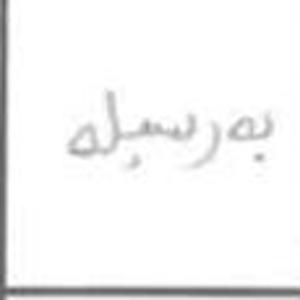 بەرسیلە